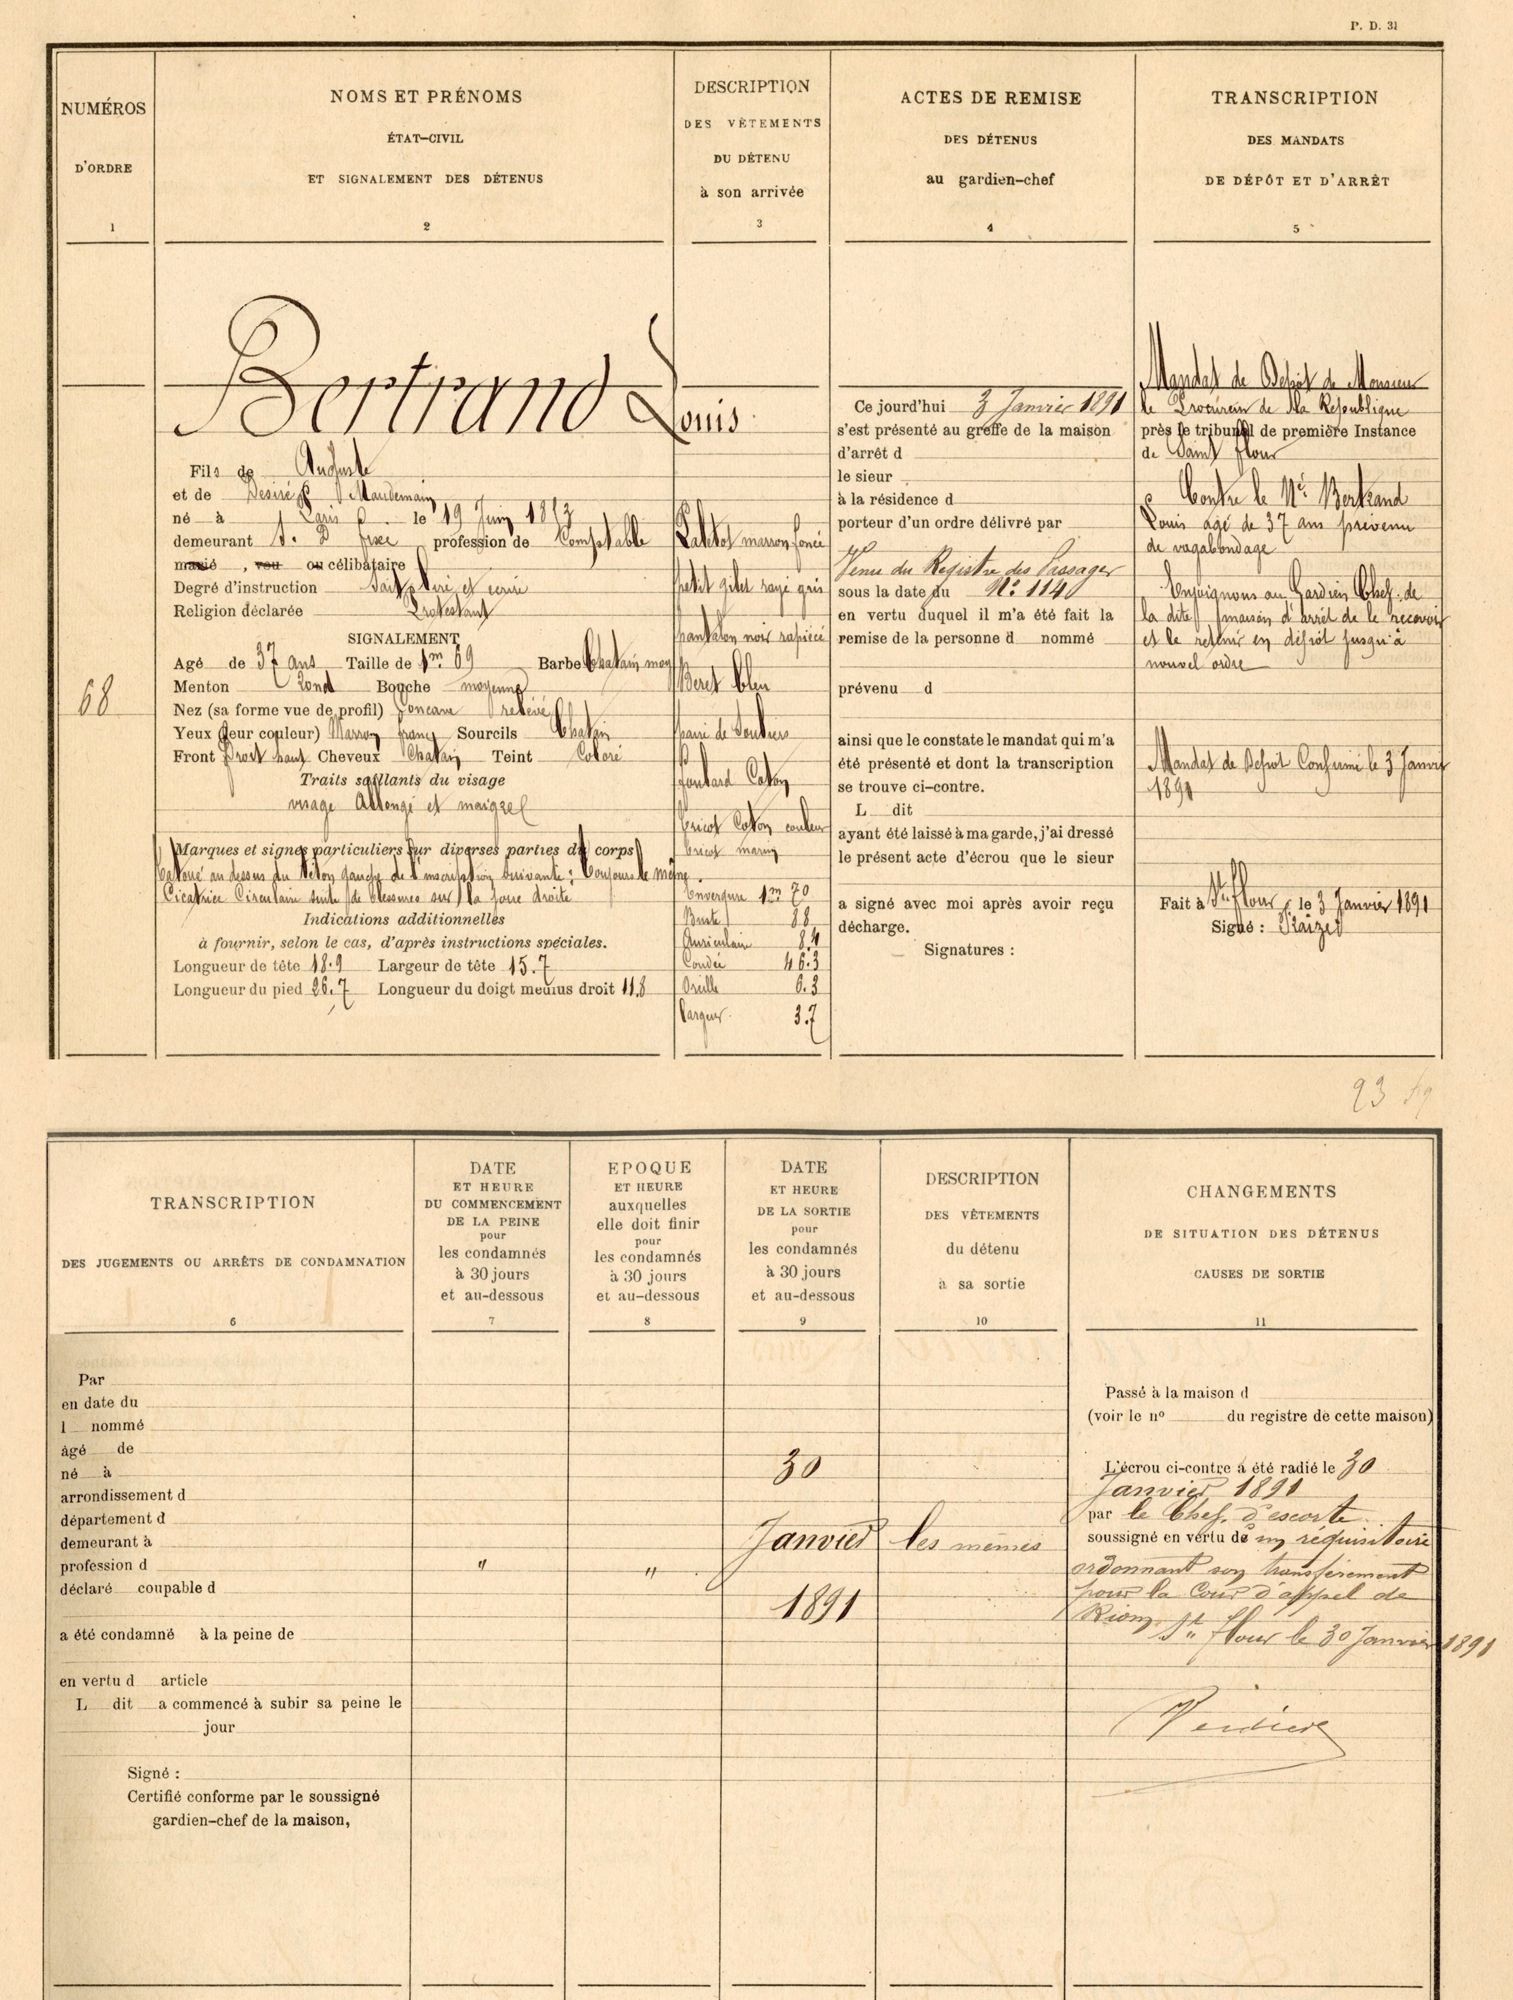 P. D. 31
NUMÉROS
D'ORDRE
1
NOMS ET PRÉNOMS
ÉTAT-CIVIL
ET SIGNALEMENT DES DÉTENUS
2
DESCRIPTION
DES VÊTEMENTS
DU DÉTENU
à son arrivée
3
ACTES DE REMISE
DES DÉTENUS
au gardien-chef
4
TRANSCRIPTION
DES MANDATS
DE DÉPÔT ET D'ARRÊT
5
68
Bertrand Louis
Fils de Auguste
et de Desirée Maudemain
né à Paris le 19 Juin 1853
demeurant S. D fixe profession de Comptable
marié, veu ou célibataire
Degré d'instruction Sait lire et ecrire
Religion déclarée Protestant
SIGNALEMENT
Agé de 37 ans Taille de 1m 69 Barbe Chatain moy
Menton Rond Bouche moyenne
Nez (sa forme vue de profil) Concave relevé
Yeux (leur couleur) Marron franc Sourcils Chatain
Front Droit haut Cheveux Chatain Teint Coloré
Traits saillants du visage
visage Allongé et maigre
Marques et signes particuliers sur diverses parties du corps
Tatoué au dessus du Téton gauche de l'inscription Suivante : Toujours le même.
Cicatrice Circulaire suite de blessures sur la joue droite
Indications additionnelles
à fournir, selon le cas, d'après instructions spéciales.
Longueur de tête 18.9 Largeur de tête 15.7
Longueur du pied 26.7 Longueur du doigt medius droit 11.8
Paletot marron foncé
petit gilet rayé gris
pantalon noir rapiécé
Beret bleu
paire de Souliers
foulard Coton
tricot Coton couleur
tricot marin
Envergure 1m 70
Buste 88
Auriculaire 8.4
Coudée 46.3
Oreille 6.3
Largeur 3.7
Ce jourd'hui 3 Janvier 1891
s'est présenté au greffe de la maison
d'arrêt d
le sieur
à la résidence d
porteur d'un ordre délivré par
Venu du Registre des Passager
sous la date du No. 1140
en vertu duquel il m'a été fait la
remise de la personne d nommé
prévenu d
ainsi que le constate le mandat qui m'a
été présenté et dont la transcription
se trouve ci-contre.
L dit
ayant été laissé à ma garde, j'ai dressé
le présent acte d'écrou que le sieur
a signé avec moi après avoir reçu
décharge.
Signatures :
Mandat de Depôt de Monsieur
le Procureur de la Republique
près le tribunal de première Instance
de Saint flour
Contre le Né Bertrand
Louis agé de 37 ans prevenu
de vagabondage
Enjoignons au Gardien Chef de
la dite maison d'arrêt de le recevoir
et le retenir en dépôt jusqu'à
nouvel ordre
Mandat de Depôt Confirmé le 3 Janvier
1891
Fait à St flour, le 3 Janvier 1891
Signé :
93
TRANSCRIPTION
DES JUGEMENTS OU ARRÊTS DE CONDAMNATION
6
DATE
ET HEURE
DU COMMENCEMENT
DE LA PEINE
pour
les condamnés
à 30 jours
et au-dessous
7
EPOQUE
ET HEURE
auxquelles
elle doit finir
pour
les condamnés
à 30 jours
et au-dessous
8
DATE
ET HEURE
DE LA SORTIE
pour
les condamnés
à 30 jours
et au-dessous
9
DESCRIPTION
DES VÊTEMENTS
du détenu
à sa sortie
10
CHANGEMENTS
DE SITUATION DES DÉTENUS
CAUSES DE SORTIE
11
Par
en date du
l nommé
âgé de
né à
arrondissement d
département d
demeurant à
profession d
déclaré coupable d
a été condamné à la peine de
en vertu d article
L dit a commencé à subir sa peine le
jour
Signé :
Certifié conforme par le soussigné
gardien-chef de la maison,
"
"
30
Janvier
1891
les mêmes
Passé à la maison d
(voir le no du registre de cette maison)
L'écrou ci-contre a été radié le 30
Janvier 1891
par le Chef d'escorte
soussigné en vertu de un réquisitoire
ordonnant son transfèrement
pour la Cour d'appel de
Riom
St flour le 30 Janvier 1891